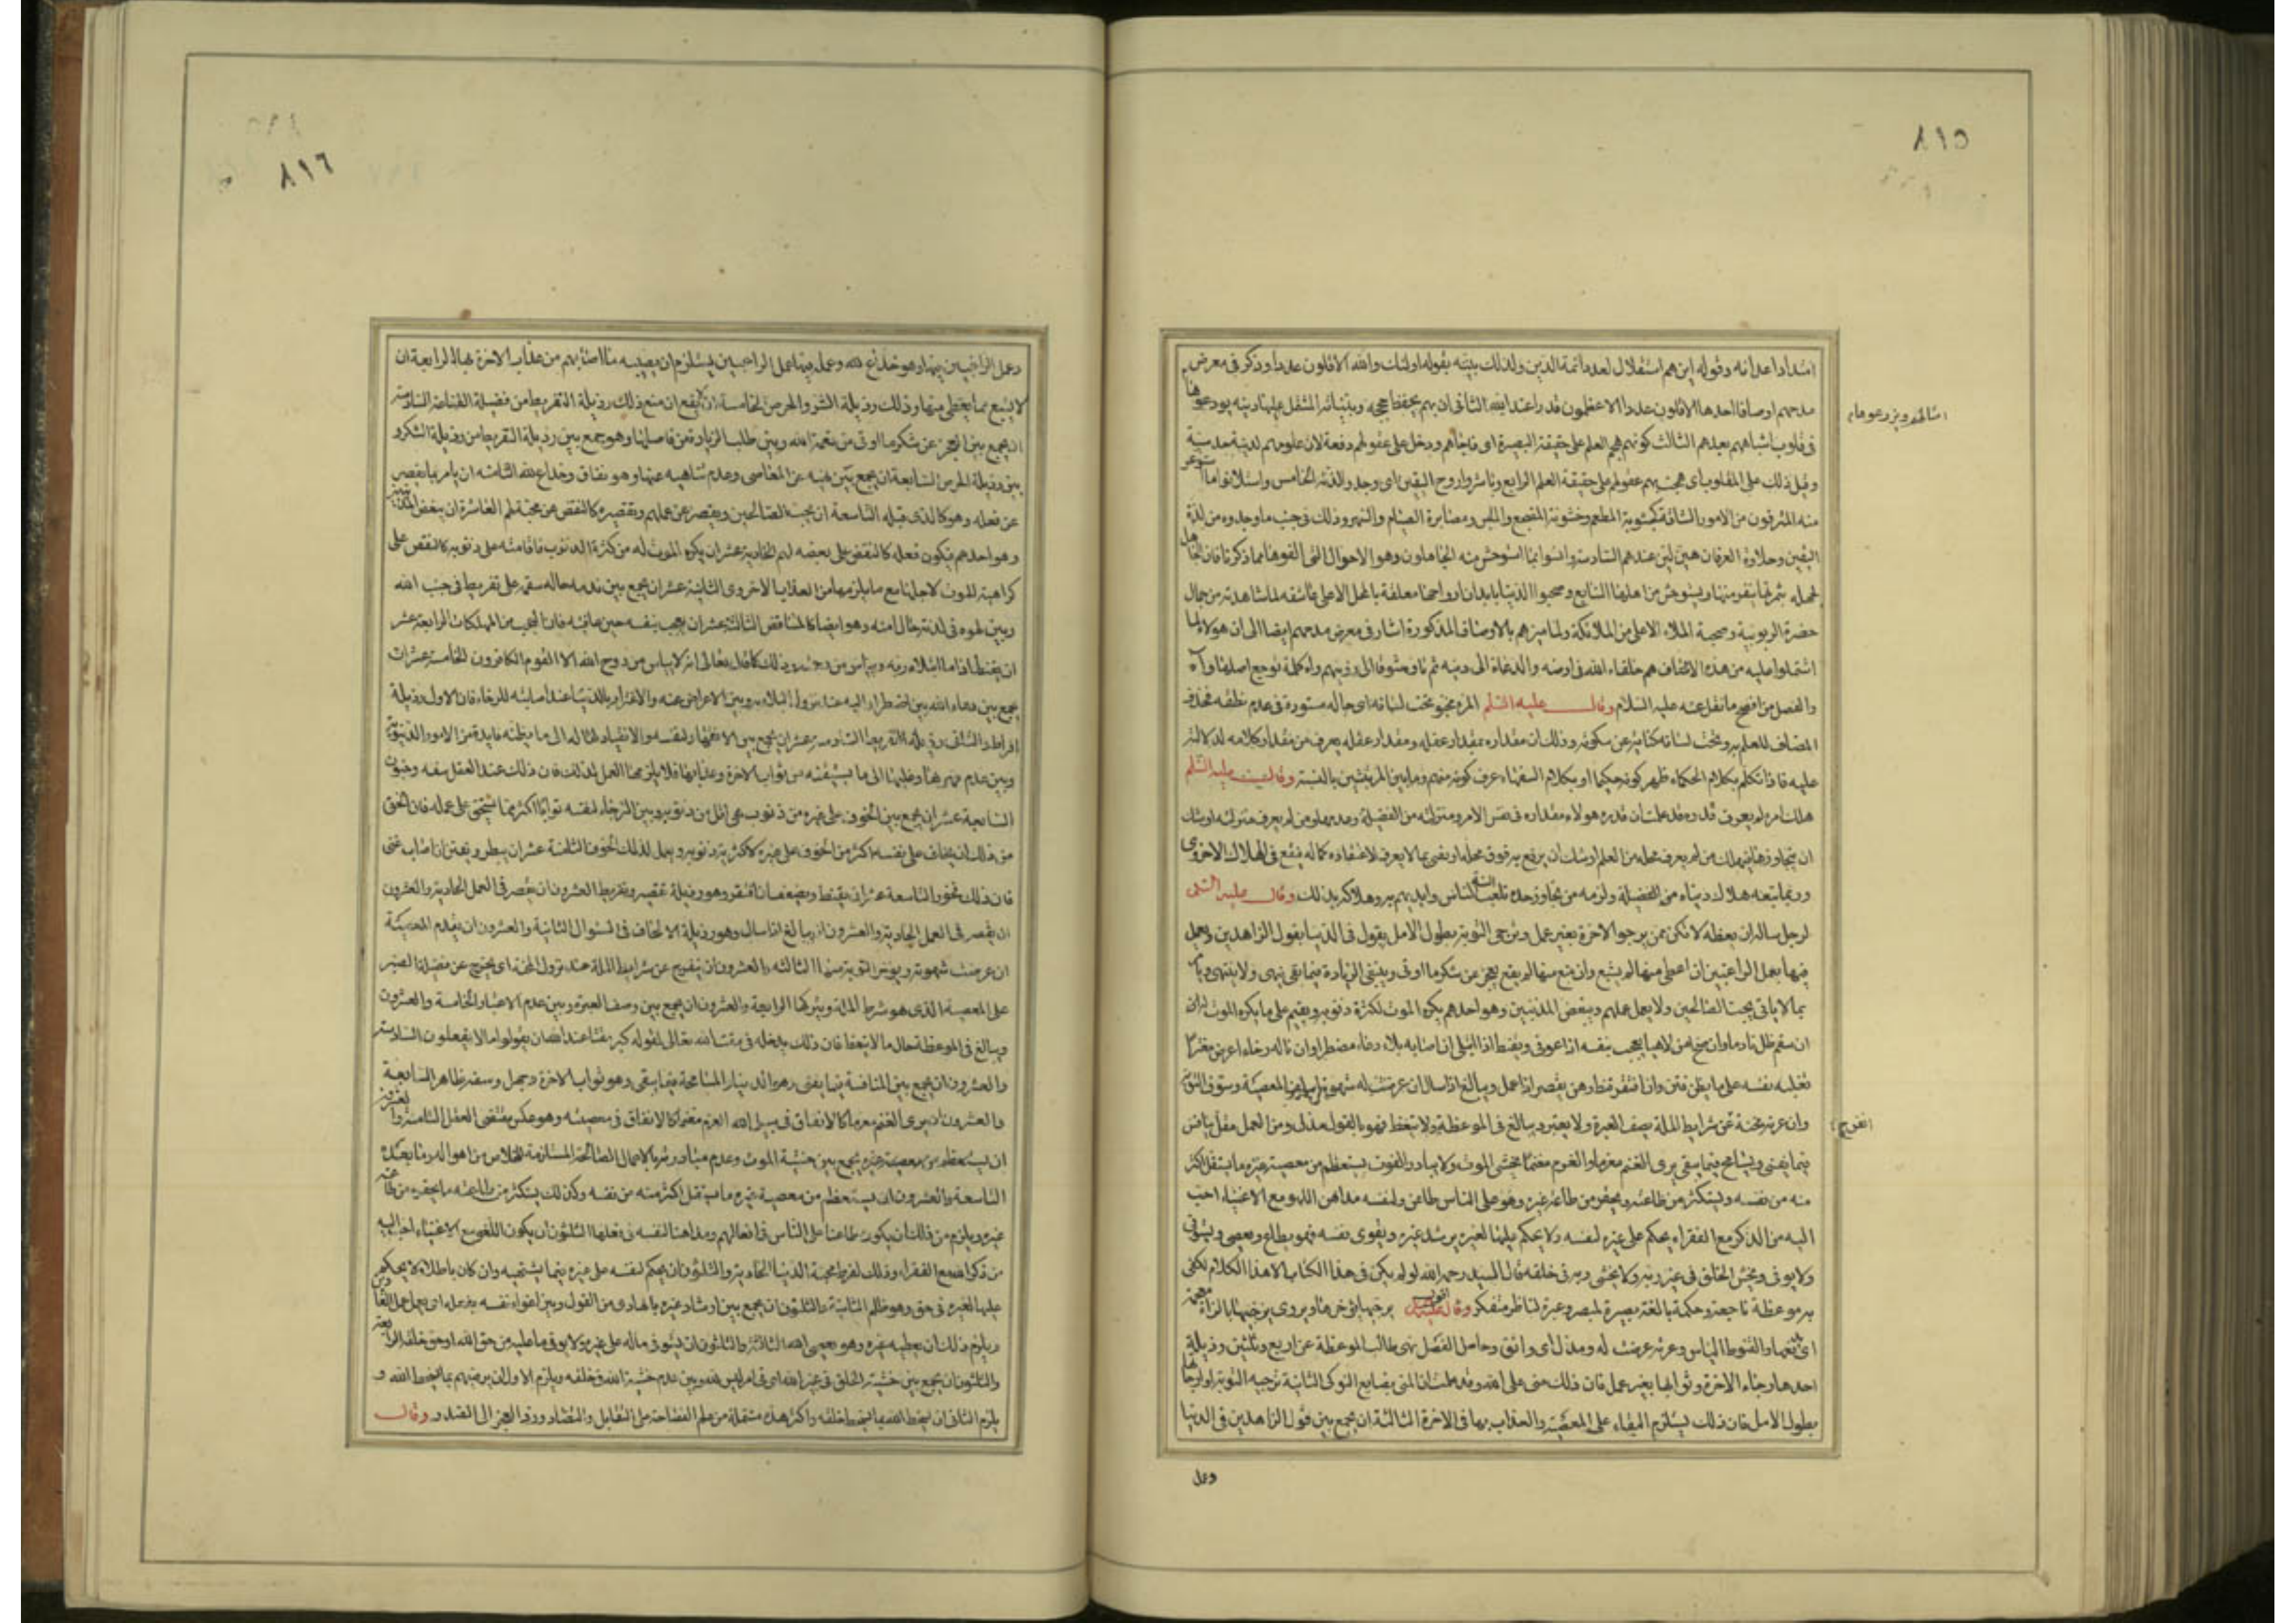 ٨١٥
امتدادا عدائه وقوله اين هم استقلال لعدد ائمة الدين ولذلك بينه بقوله اولئك والله الاقلون عددا وذكر في معرض
مدحهم اوصافا احدها الاقلون عددا الاعظمون قدرا عند الله الثاني ان بهم يحفظ حججه وبيناته المشتمل عليها دينه يودعوها
امثالهم ويزرعوها م
في قلوب اشباههم بعدهم الثالث كونهم هجم العلم على حقيقة البصيرة اى فاجاهم ودخل على عقولهم دفعة لان علومهم لدنية حدسية
وقيل ذلك على المقلوب اى هجمت بهم عقولهم على حقيقة العلم الرابع وباشروا روح اليقين اى وجدوا لذته الخامس واستلانوا ما استوعر
منه المترفون من الامور الشاقة كجشوبة المطعم وخشونة المضجع والملبس ومصابرة الصيام والسهر وذلك في جنب ما وجدوه من لذة
اليقين وحلاوة العرفان هين لين عندهم السادسة وانسوا بما استوحش منه الجاهلون وهو الاحوال التي الفوها مما ذكرنا فان الجاهل
لجهله بثمرتها ينفر منها ويستوحش من اهلها السابع وصحبوا الدنيا بابدان ارواحها معلقة بالمحل الاعلى عاشقه لما شاهدته من جمال
حضرة الربوبية وصحبة الملاء الاعلى من الملائكة ولما ميزهم بالاوصاف المذكورة اشار في معرض مدحهم ايضا الى ان هولاء لما
اشتملوا عليه من هذه الاوصاف هم خلفاء الله في ارضه والدعاة الى دينه ثم تاوه شوقا الى رؤيتهم واه كلمة توجع اصلها اوآه
والفصل من افصح ما نقل عنه عليه السلام وقال عليه السلم المرء مخبو تحت لسانه اى حاله مستورة في عدم نطقه فحذف
المضاف للعلم به وتحت لسانه كناية عن سكوته وذلك ان مقداره بمقدار عقله ومقدار عقله يعرف من مقدار كلامه لدلالته
عليه فاذا تكلم بكلام الحكماء ظهر كونه حكيما او بكلام السفهاء عرف كونه منهم وما بين المرتبتين بالنسبة وقال عليه السلم
هلك امرء لم يعرف قدره وقد علمت ان قدره هو لاء مقداره في نفس الامر ومنزلته من الفضيلة وعدمها ومن لم يعرف منزلته اوشك
ان يتجاوزها فيهلك من لم يعرف محله من العلم اوشك ان يرفع به فوق محله او يفتى بما لا يعرف لاعتقاده كماله فيقع في الهلاك الاخروى
وربما يتبعه هلاك دنياه من الفضيلة ولزمه من تجاوز حده تلعب السنة الناس وايديهم به وهلاكه بذلك وقال عليه السلم
لرجل ساله ان يعظه لا تكن ممن يرجو الاخرة بغير عمل ويرجى التوبة بطول الامل يقول في الدنيا بقول الزاهدين ويعمل
فيها بعمل الراغبين ان اعطى منها لم يشبع وان منع منها لم يقنع يعجز عن شكر ما اوتى ويبتغى الزيادة فيما بقى ينهى ولا ينتهى ويامر
بما لا ياتى يحب الصالحين ولا يعمل عملهم ويبغض المذنبين وهو احدهم يكره الموت لكثرة ذنوبه ويقيم على ما يكره الموت له
ان سقم ظل نادما وان صح امن لاهيا يعجب بنفسه اذا عوفى ويقنط اذا ابتلى ان اصابه بلاء دعاء مضطرا وان ناله رخاء اعرض مغترا
تغلبه نفسه على ما يظن فتن وان افتقر قنط ووهن يقصر اذا عمل ويبالغ اذا سال ان عرضت له شهوة اسلف المعصية وسوف التوبة
وان عرته محنة انفرج عن شرايط الملة يصف العبرة ولا يعتبر ويبالغ في الموعظة ولا يتعظ فهو بالقول مدل ومن العمل مقل ينافس
فيما يفنى ويسامح فيما يبقى يرى الغنم مغرما والغرم مغنما يخشى الموت ولا يبادر الفوت يستعظم من معصية غيره ما يستقل اكثر
منه من نفسه ويستكثر من طاعته ما يحقره من طاعة غيره فهو على الناس طاعن ولنفسه مداهن اللهو مع الاغنياء احب
اليه من الذكر مع الفقراء يحكم على غيره لنفسه ولا يحكم عليها لغيره يرشد غيره ويغوى نفسه فهو يطاع ويعصى ويستوفى
ولا يوفى ويخشى الخلق في غير ربه ولا يخشى ربه في خلقه قال السيد رحمه الله لو لم يكن في هذا الكتاب الا هذا الكلام لكفى
به موعظة ناجعة وحكمة بالغة وبصيرة لمبصر وعبرة لناظر متفكر يرجيها يؤخرها ويروى يزجيها بالزاء معجمة
اى يدفعها والقنوط الياس وعرته عرضت له ومدل اى واثق وحاصل الفصل نهى طالب الموعظة عن اربع وثلثين رذيلة
احدها رجاء الاخرة وثوابها بغير عمل فان ذلك منى على الله وقد علمت ان المنى بضايع النوكى الثانية ترجيه التوبة او ارجاها
بطول الامل فان ذلك يستلزم البقاء على المعصية والعذاب بها في الاخرة الثالثة ان يجمع بين قول الزاهدين في الدنيا
وعمل
٨١٦
وعمل الراغبين فيها وهو خداع لله وعمله فيها عمل الراغبين يستلزم ان يصيبه ما اصابهم من عذاب الاخرة بها الرابعة ان
لا يشبع بما يعطى منها وذلك رذيلة الشره والحرص الخامسة ان لا يقنع ان منع ذلك رذيلة التفريط من فضيلة القناعة السادسة
ان يجمع بين العجز عن شكر ما اوتى من نعمة الله وبين طلب الزيادة من فاضلها وهو جمع بين رذيلة التفريط من رذيلة الشكر و
بين رذيلة الحرص السابعة ان يجمع بين نهيه عن المعاصى وعدم تناهيه عنها وهو نفاق وخداع لله الثامنة ان يامر بما يقصر
عن فعله وهو كالذى قبله التاسعة ان يحب الصالحين ويقصر عن عملهم وتقصيره كالنقض عن محبته لهم العاشرة ان يبغض المذنبين
وهو احدهم فيكون فعله كالنقض على بغضه لهم الحادية عشر ان يكره الموت له من كثرة الذنوب فاقامته على ذنوبه كالنقض على
كراهية الموت لاجلها مع ما يلزمها من العذاب الاخروى الثانية عشر ان يجمع بين ندمه حاله سقمه على تفريطه في جنب الله
وبين لهوه في لذته حال امنه وهو ايضا كالمتناقض الثالثة عشر ان يعجب بنفسه حين عافيته فان العجب من المهلكات الرابعة عشر
ان يقنط اذا ما ابتلاه ربه ويياس من رحمته وذلك كما قال تعالى انه لا يياس من روح الله الا القوم الكافرون الخامسة عشر ان
يجمع بين دعاء الله بين اضطرار اليه عند نزول البلاء به وبين الاعراض عنه والاغترار بالدنيا عند اصابته للرخاء فان الاول رذيلة
افراط والثاني رذيلة التفريط السادسة عشر ان يجمع بين الانقهار لنفسه والانقياد لها الى ما يظنه فايدة من الامور الدنيوية
وبين عدم قهرها وغلبها الى ما يستيقنه من ثواب الاخرة وعذابها فلا يلزمها العمل لذلك فان ذلك عند العقل سفه وجنون
السابعة عشر ان يجمع بين الخوف على غيره من ذنوب هى اقل من ذنوبه وبين الرجاء لنفسه ثوابا اكثر مما يستحق على عمله فان الحق
من ذلك ان يخاف على نفسه اكثر من الخوف على غيره لاكثرية ذنوبه ويعمل لذلك الخوف الثامنة عشر ان يبطر ويفتن ان اصاب غنى
فان ذلك فجور التاسعة عشر ان يقنط ويضعف ان افتقر وهو رذيلة تقصير وتفريط العشرون ان يقصر في العمل الحادية والعشرون
ان يقصر في العمل الحادية والعشرون ان يبالغ اذا سال وهو رذيلة الالحاف في السوال الثانية والعشرون ان يقدم المعصية
ان عرضت شهوته ويؤخر التوبة منها الثالثة والعشرون ان ينفرج عن شرايط الملة عند نزول المحنة اى يخرج عن فضيلة الصبر
على المصيبة الذى هو شرط الملة ويتركها الرابعة والعشرون ان يجمع بين وصف العبرة وبين عدم الاعتبار الخامسة والعشرون
ويبالغ في الموعظة حال ما لا يتعظ فان ذلك يدخله في مقت الله تعالى لقوله كبر مقتا عند الله ان تقولوا ما لا تفعلون السادسة
والعشرون ان يجمع بين المنافسة فيما يفنى وهو الدنيا والمسامحة فيما يبقى وهو ثواب الاخرة وجهل وسفه ظاهر السابعة
والعشرون ان يرى الغنم مغرما كالانفاق في سبيل الله الغرم مغنما كالانفاق في معصيته وهو عكس مقتضى العقل الثامنة والعشرون
ان يجمع بين خشية الموت وعدم مبادرته بالاعمال الصالحة المستلزمة للخلاص من اهواله وما بعده
التاسعة والعشرون ان يستعظم من معصية غيره ما يستقل اكثر منه من نفسه وكذلك يستكثر من طاعته ما يحقره من طاعة
غيره ويلزم من ذلك ان يكون طاعنا على الناس في افعالهم ومداهنا لنفسه في فعلها الثلثون ان يكون اللغو مع الاغنياء احب اليه
من ذكر الله مع الفقراء وذلك لفرط محبة الدنيا الحادية والثلثون ان يحكم لنفسه على غيره فيما يشتهيه وان كان باطلا ولا يحكم
عليها لغيره في حق وهو ظالم الثانية والثلثون ان يجمع بين ارشاد غيره بالهادى من القول وبين اغواء نفسه
ويلزم ذلك ان يطيعه غيره وهو يعصى الله الثالثة والثلثون ان يستوفى ماله على غيره ولا يوفى ما عليه من حق الله او حق خلقه الرابعة
والثلثون ان يجمع بين خشية الخلق في غير الله اى في امر ليس لله وبين عدم خشية الله في خلقه ويلزم الاول ان يرضيهم بما يسخط الله و
يلزم الثاني ان يسخط الله بما يسخط خلقه واكثر هذه مشتملة من علم الفصاحة على التقابل والتضاد ورد العجز الى الصدر وقال